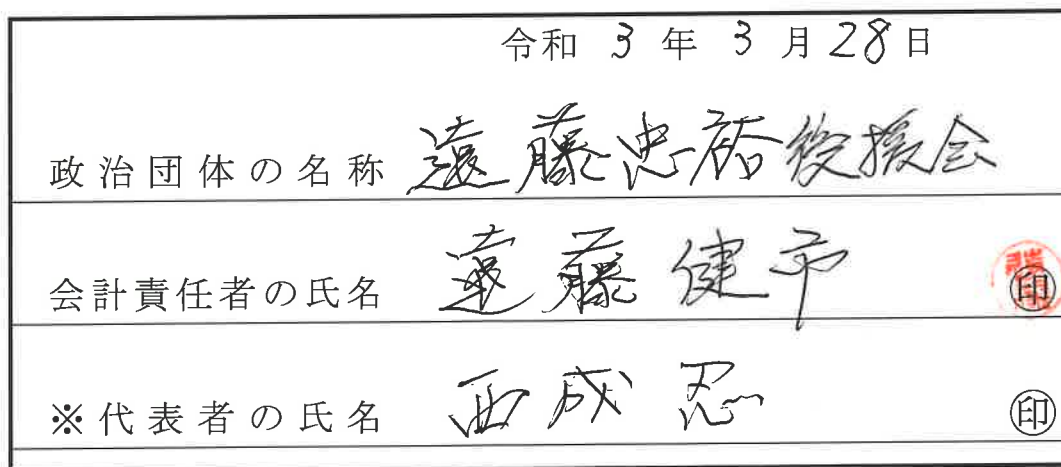 令和 3 年 3 月 28 日
政治団体の名称 遠藤忠裕後援会
会計責任者の氏名 遠藤健予 印
※代表者の氏名 西成忍 印